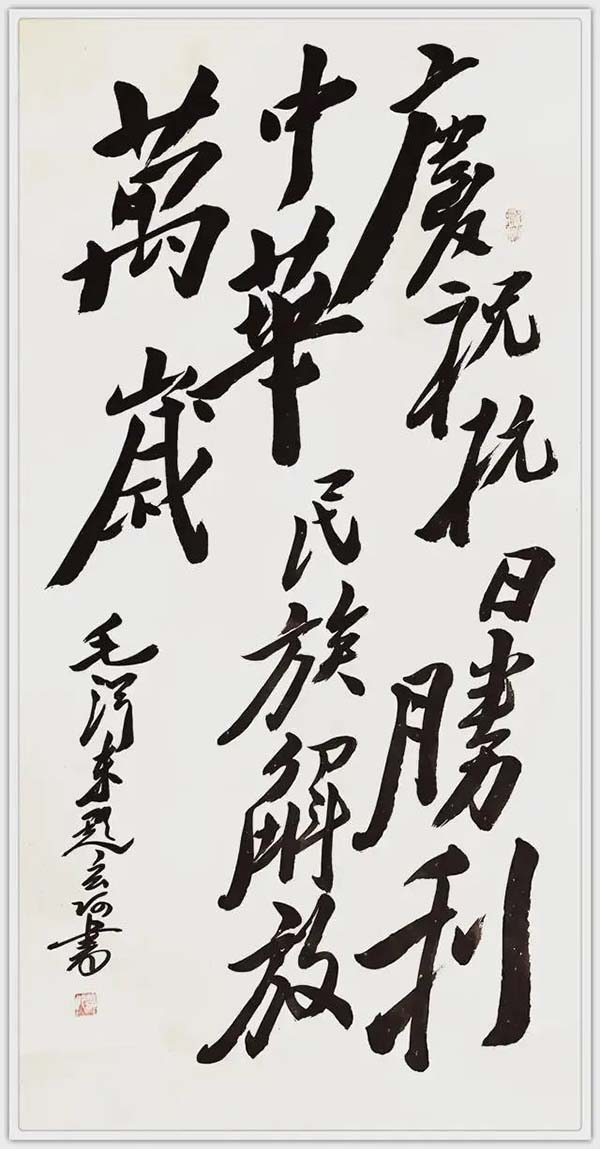 慶祝抗日勝利
中華民族解放
萬歲
毛澤東題云河書